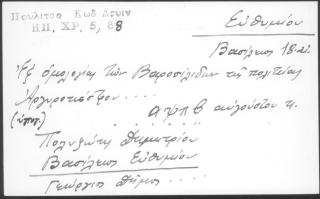 Πουλιτσα Κωδ Δρυιν
ΗΠ, ΧΡ, 5, 88
Ευθυμίου
Βασίλειος 18-21
Εξ ομολογίας των Βαροσιλίδων της πολιτείας
Αργυροκάστρου....
αψπβ αυγούστου κ.
(υπογ.)
Πολυζώης Δημητρίου
Βασίλειος Ευθυμίου
Γεώργιος Δήμος....